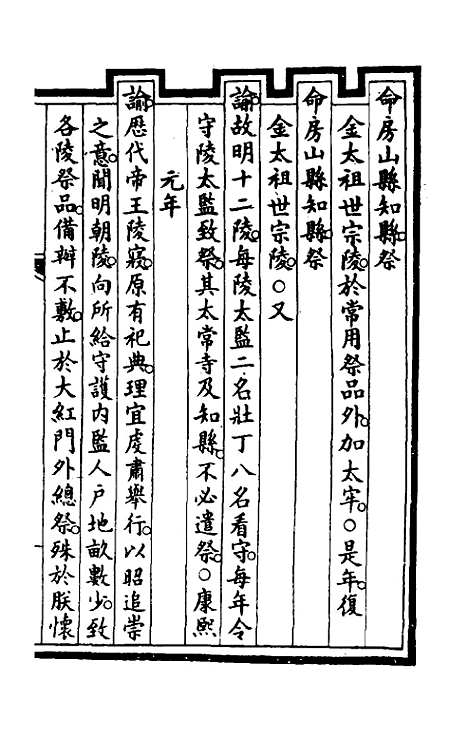 命房山縣知縣祭
金太祖世宗陵於常用祭品外加太牢○是年復
命房山縣知縣祭
金太祖世宗陵○又
諭故明十二陵每陵太監二名壯丁八名看守每年令
守陵太監致祭其太常寺及知縣不必遣祭○康熙
元年
諭歷代帝王陵寢原有祀典理宜虔肅舉行以昭追崇
之意聞明朝陵向所給守護内監人戶地畝數少致
各陵祭品備辦不敷止於大紅門外總祭殊於朕懷